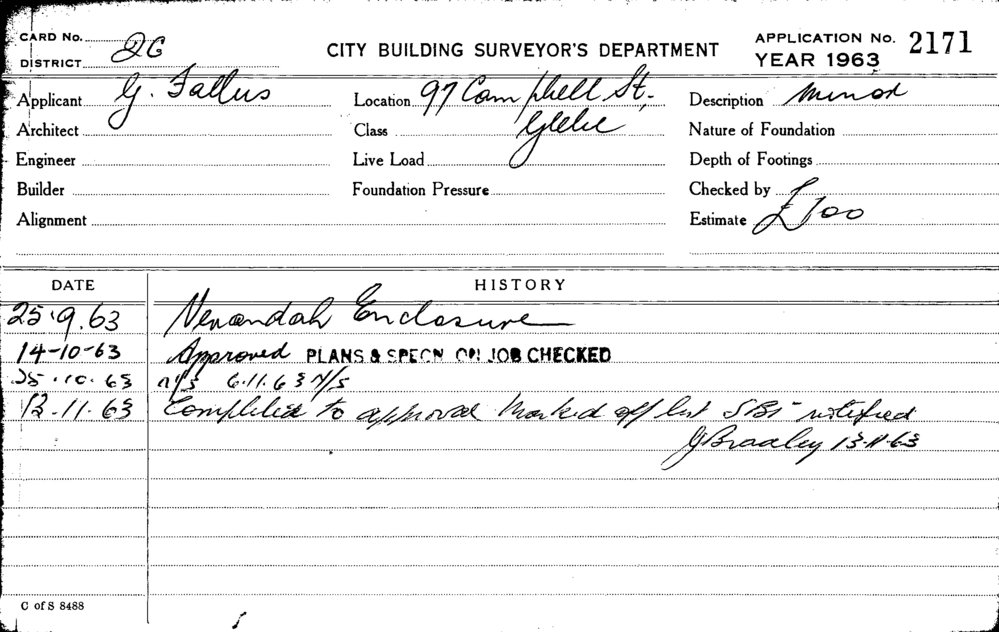 CARD No. 2G
DISTRICT
CITY BUILDING SURVEYOR'S DEPARTMENT
APPLICATION No. 2171
YEAR 1963
Applicant G. Fallus Location 97 Campbell St, Description Minor
Architect Class Glebe Nature of Foundation
Engineer Live Load Depth of Footings
Builder Foundation Pressure Checked by
Alignment Estimate £100
DATE HISTORY
25.9.63 Verandah Enclosure
14-10-63 Approved PLANS & SPECN ON JOB CHECKED
25.10.63 n/s 6.11.63 N/S
13.11.63 Completed to approval Marked off list SBI notified
JBradley 13-11-63
C of S 8488